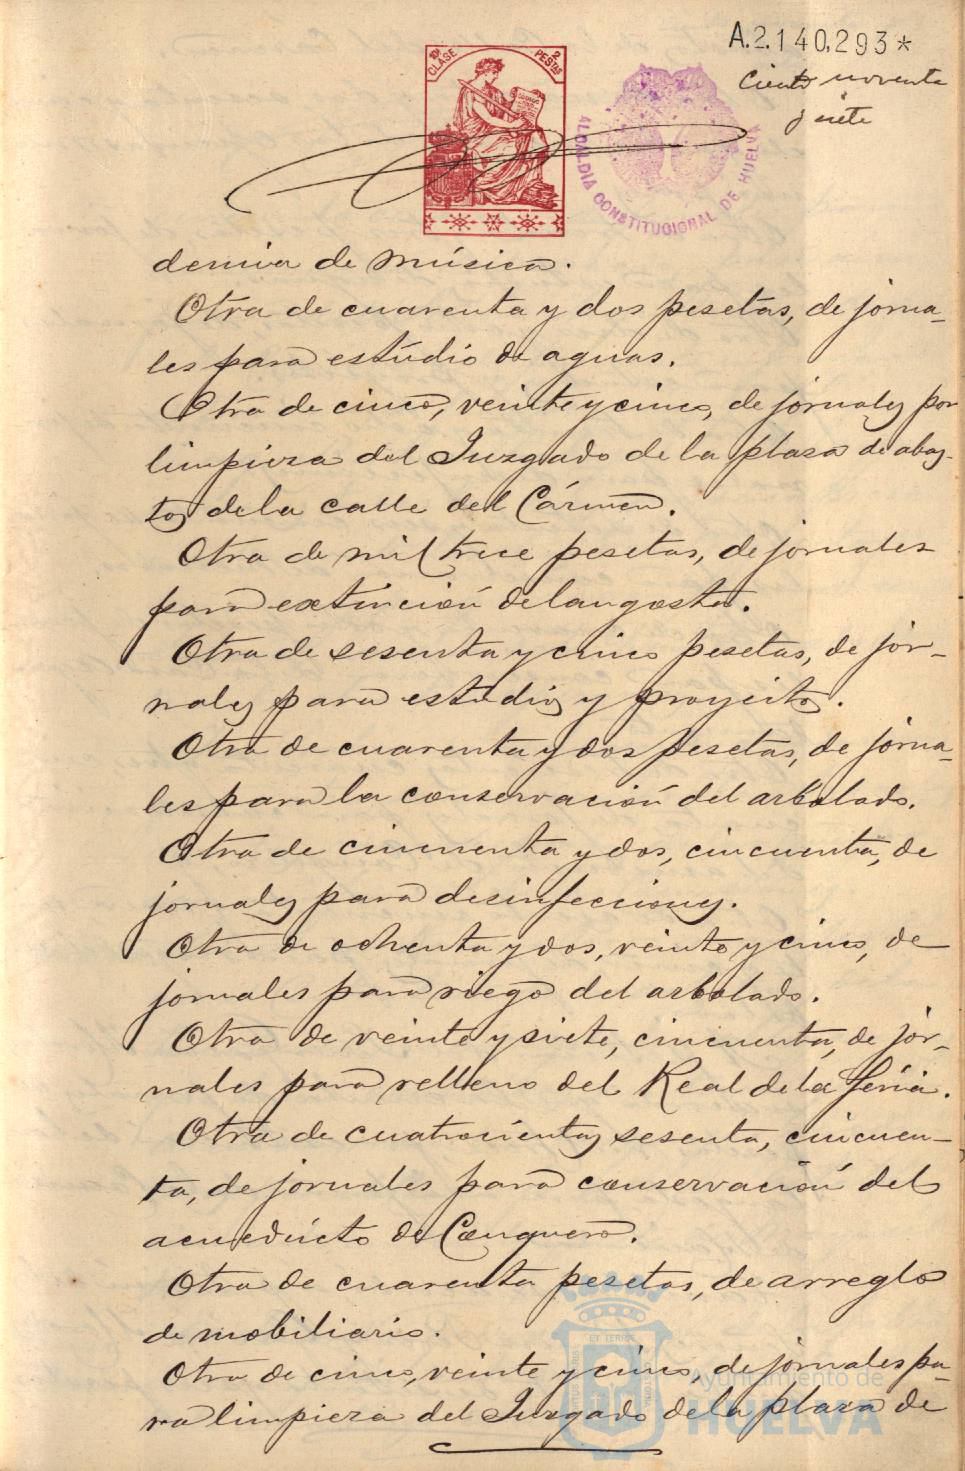 A.2.140,293*
Ciento noventa
y siete
10ª CLASE
2 PESTAS
ALCALDIA CONSTITUCIONAL DE HUELVA
demia de Música.
Otra de cuarenta y dos pesetas, de jorna-
les para estúdio de aguas.
Otra de cinco, veinte y cinco, de jornales por
limpieza del Juzgado de la plaza de abas-
tos de la calle del Cármen.
Otra de mil trece pesetas, de jornales
para extinción de langosta.
Otra de sesenta y cinco pesetas, de jor-
nales para estudios y proyectos.
Otra de cuarenta y dos pesetas, de jorna-
les para la conservación del arbolado.
Otra de cincuenta y dos, cincuenta, de
jornales para desinfecciones.
Otra de ochenta y dos, veinte y cinco, de
jornales para riego del arbolado.
Otra de veinte y siete, cincuenta, de jor-
nales para relleno del Real de la Féria.
Otra de cuatrocientas sesenta, cincuen-
ta, de jornales para conservación del
acuedúcto de Conquero.
Otra de cuarenta pesetas, de arreglos
de mobiliario.
Otra de cinco, veinte y cinco, de jornales pa-
ra limpieza del Juzgado de la plaza de
Ayuntamiento de
HUELVA